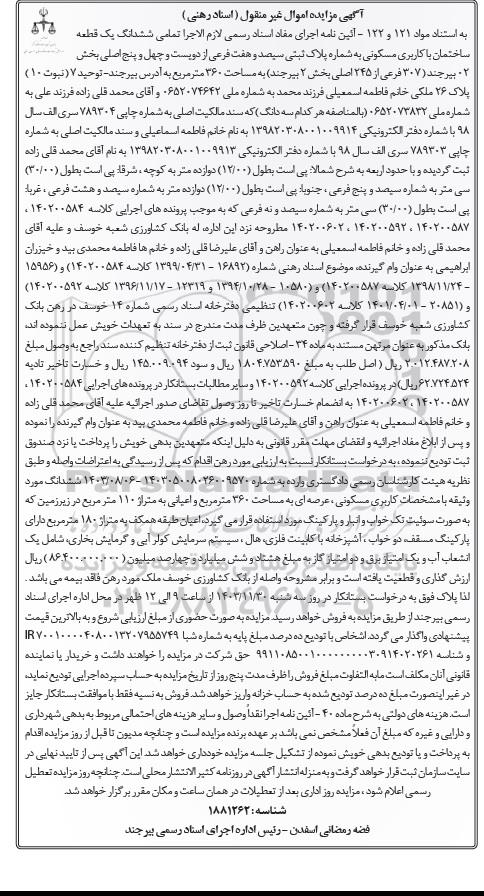 آگهی مزایده اموال غیر منقول ( اسناد رهنی )
به استناد مواد ۱۲۱ و ۱۲۲ - آئین نامه اجرای مفاد اسناد رسمی لازم الاجرا تمامی ششدانگ یک قطعه
ساختمان با کاربری مسکونی به شماره پلاک ثبتی سیصد و هفت فرعی از دویست و چهل و پنج اصلی بخش
۰۲ بیرجند ( ۳۰۷ فرعی از ۲۴۵ اصلی بخش ۲ بیرجند ) به مساحت ۳۶۰ مترمربع به آدرس بیرجند - توحید ۷ ( نبوت ۱۰ )
پلاک ۲۶ ملکی خانم فاطمه اسمعیلی فرزند محمد به شماره ملی ۰۶۵۲۰۷۴۶۴۲ و آقای محمد قلی زاده فرزند علی به
شماره ملی ۰۶۵۲۰۷۳۸۳۲ (بالمناصفه هر کدام سه دانگ) که سند مالکیت اصلی به شماره چاپی ۷۸۹۳۰۴ سری الف سال
۹۸ با شماره دفتر الکترونیکی ۱۳۹۸۲۰۳۰۸۰۰۱۰۰۹۹۱۴ به نام خانم فاطمه اسماعیلی و سند مالکیت اصلی به شماره
چاپی ۷۸۹۳۰۳ سری الف سال ۹۸ با شماره دفتر الکترونیکی ۱۳۹۸۲۰۳۰۸۰۰۱۰۰۹۹۱۳ به نام آقای محمد قلی زاده
ثبت گردیده و با حدود اربعه به شرح شمالا: پی است بطول (۱۲/۰۰) دوازده متر به کوچه ، شرقا: پی است بطول (۳۰/۰۰)
سی متر به شماره سیصد و پنج فرعی ، جنوبا: پی است بطول (۱۲/۰۰) دوازده متر به شماره سیصد و هشت فرعی ، غربا:
پی است بطول (۳۰/۰۰) سی متر به شماره سیصد و نه فرعی که به موجب پرونده های اجرایی کلاسه ۱۴۰۲۰۰۵۸۴ ،
۱۴۰۲۰۰۵۸۷ ، ۱۴۰۲۰۰۵۹۲ ، ۱۴۰۲۰۰۶۰۲ مطروحه نزد این اداره، له بانک کشاورزی شعبه خوسف و علیه آقای
محمد قلی زاده و خانم فاطمه اسمعیلی به عنوان راهن و آقای علیرضا قلی زاده و خانم ها فاطمه محمدی بید و خیزران
ابراهیمی به عنوان وام گیرنده، موضوع اسناد رهنی شماره (۱۶۸۹۲ - ۱۳۹۹/۰۴/۳۱ کلاسه ۱۴۰۲۰۰۵۸۴) و (۱۵۹۵۶
- ۱۳۹۸/۱۱/۲۴ کلاسه ۱۴۰۲۰۰۵۸۷) و (۱۰۵۸۰ - ۱۳۹۴/۱۰/۲۸ و ۱۲۳۱۹ - ۱۳۹۶/۱۱/۱۷ کلاسه ۱۴۰۲۰۰۵۹۲)
و (۲۰۸۵۱ - ۱۴۰۱/۰۴/۰۱ کلاسه ۱۴۰۲۰۰۶۰۲) تنظیمی دفترخانه اسناد رسمی شماره ۱۴ خوسف در رهن بانک
کشاورزی شعبه خوسف قرار گرفته و چون متعهدین ظرف مدت مندرج در سند به تعهدات خویش عمل ننموده اند،
بانک مذکور به عنوان مرتهن مستند به ماده ۳۴ - اصلاحی قانون ثبت از دفترخانه تنظیم کننده سند راجع به وصول مبلغ
۲.۰۱۲.۴۸۷.۲۰۸ ریال ( اصل طلب به مبلغ ۱.۸۰۴.۷۵۳.۵۹۰ ریال و سود ۱۴۵.۰۰۹.۰۹۴ ریال و خسارت تاخیر تادیه
۶۲.۷۲۴.۵۲۴ ریال) در پرونده اجرایی کلاسه ۱۴۰۲۰۰۵۹۲ و سایر مطالبات بستانکار در پرونده های اجرایی ۱۴۰۲۰۰۵۸۴ ،
۱۴۰۲۰۰۵۸۷ ، ۱۴۰۲۰۰۶۰۲ به انضمام خسارت تاخیر تا روز وصول تقاضای صدور اجرائیه علیه آقای محمد قلی زاده
و خانم فاطمه اسمعیلی به عنوان راهن و آقای علیرضا قلی زاده و خانم فاطمه محمدی بید به عنوان وام گیرنده را نموده
و پس از ابلاغ مفاد اجرائیه و انقضای مهلت مقرر قانونی به دلیل اینکه متعهدین بدهی خویش را پرداخت یا نزد صندوق
ثبت تودیع ننموده ، به درخواست بستانکار نسبت به ارزیابی مورد رهن اقدام که پس از رسیدگی به اعتراضات واصله و طبق
نظریه هیئت کارشناسان رسمی دادگستری وارده به شماره ۱۴۰۳۰۵۰۰۸۰۲۶۰۰۹۵۷۰ - ۱۴۰۳/۰۸/۰۶ ششدانگ مورد
وثیقه با مشخصات کاربری مسکونی ، عرصه ای به مساحت ۳۶۰ مترمربع و اعیانی به متراژ ۱۱۰ متر مربع در زیرزمین که
به صورت سوئیت تک خواب و انبار و پارکینگ مورد استفاده قرار می گیرد، اعیان طبقه همکف به متراژ ۱۸۰ مترمربع دارای
پارکینگ مسقف، دو خواب ، آشپزخانه با کابینت فلزی، هال ، سیستم سرمایش کولر آبی و گرمایش بخاری، شامل یک
انشعاب آب و یک امتیاز برق و دو امتیاز گاز به مبلغ هشتاد و شش میلیارد و چهارصد میلیون (۸۶.۴۰۰.۰۰۰.۰۰۰) ریال
ارزش گذاری و قطعیت یافته است و برابر مشروحه واصله از بانک کشاورزی خوسف ملک مورد رهن فاقد بیمه می باشد .
لذا پلاک فوق به درخواست بستانکار در روز سه شنبه ۱۴۰۳/۱۱/۳۰ از ساعت ۹ الی ۱۲ ظهر در محل اداره اجرای اسناد
رسمی بیرجند از طریق مزایده به فروش خواهد رسید. مزایده به صورت حضوری از مبلغ ارزیابی شروع و به بالاترین قیمت
پیشنهادی واگذار می گردد. اشخاص با تودیع ده درصد مبلغ پایه به شماره شبا IR۷۰۰۱۰۰۰۰۴۰۸۰۰۱۳۲۰۷۹۵۵۷۴۹
و شناسه ۹۹۱۱۰۸۵۰۰۱۰۰۰۰۰۰۰۰۳۰۹۱۴۰۲۰۲۶۱ حق شرکت در مزایده را خواهند داشت و خریدار یا نماینده
قانونی آنان مکلف است مابه التفاوت مبلغ فروش را ظرف مدت پنج روز از تاریخ مزایده به حساب سپرده اجرایی تودیع نماید،
در غیر اینصورت مبلغ ده درصد تودیع شده به حساب خزانه واریز خواهد شد. فروش به نسیه فقط با موافقت بستانکار جایز
است. هزینه های دولتی به شرح ماده ۴۰ - آئین نامه اجرا نقداً وصول و سایر هزینه های احتمالی مربوط به بدهی شهرداری
و دارایی و غیره که مبلغ آن فعلاً مشخص نمی باشد بر عهده برنده مزایده است و چنانچه مدیون تا قبل از روز مزایده اقدام
به پرداخت و یا تودیع بدهی خویش نموده از تشکیل جلسه مزایده خودداری خواهد شد. این آگهی پس از تایید نهایی در
سایت سازمان ثبت قرار خواهد گرفت و به منزله انتشار آگهی در روزنامه کثیرالانتشار محلی است. چنانچه روز مزایده تعطیل
رسمی اعلام شود ، مزایده روز اداری بعد از تعطیلات در همان ساعت و مکان مقرر برگزار خواهد شد.
شناسه : ۱۸۸۱۲۶۲
فضه رمضانی اسفدن - رئیس اداره اجرای اسناد رسمی بیرجند